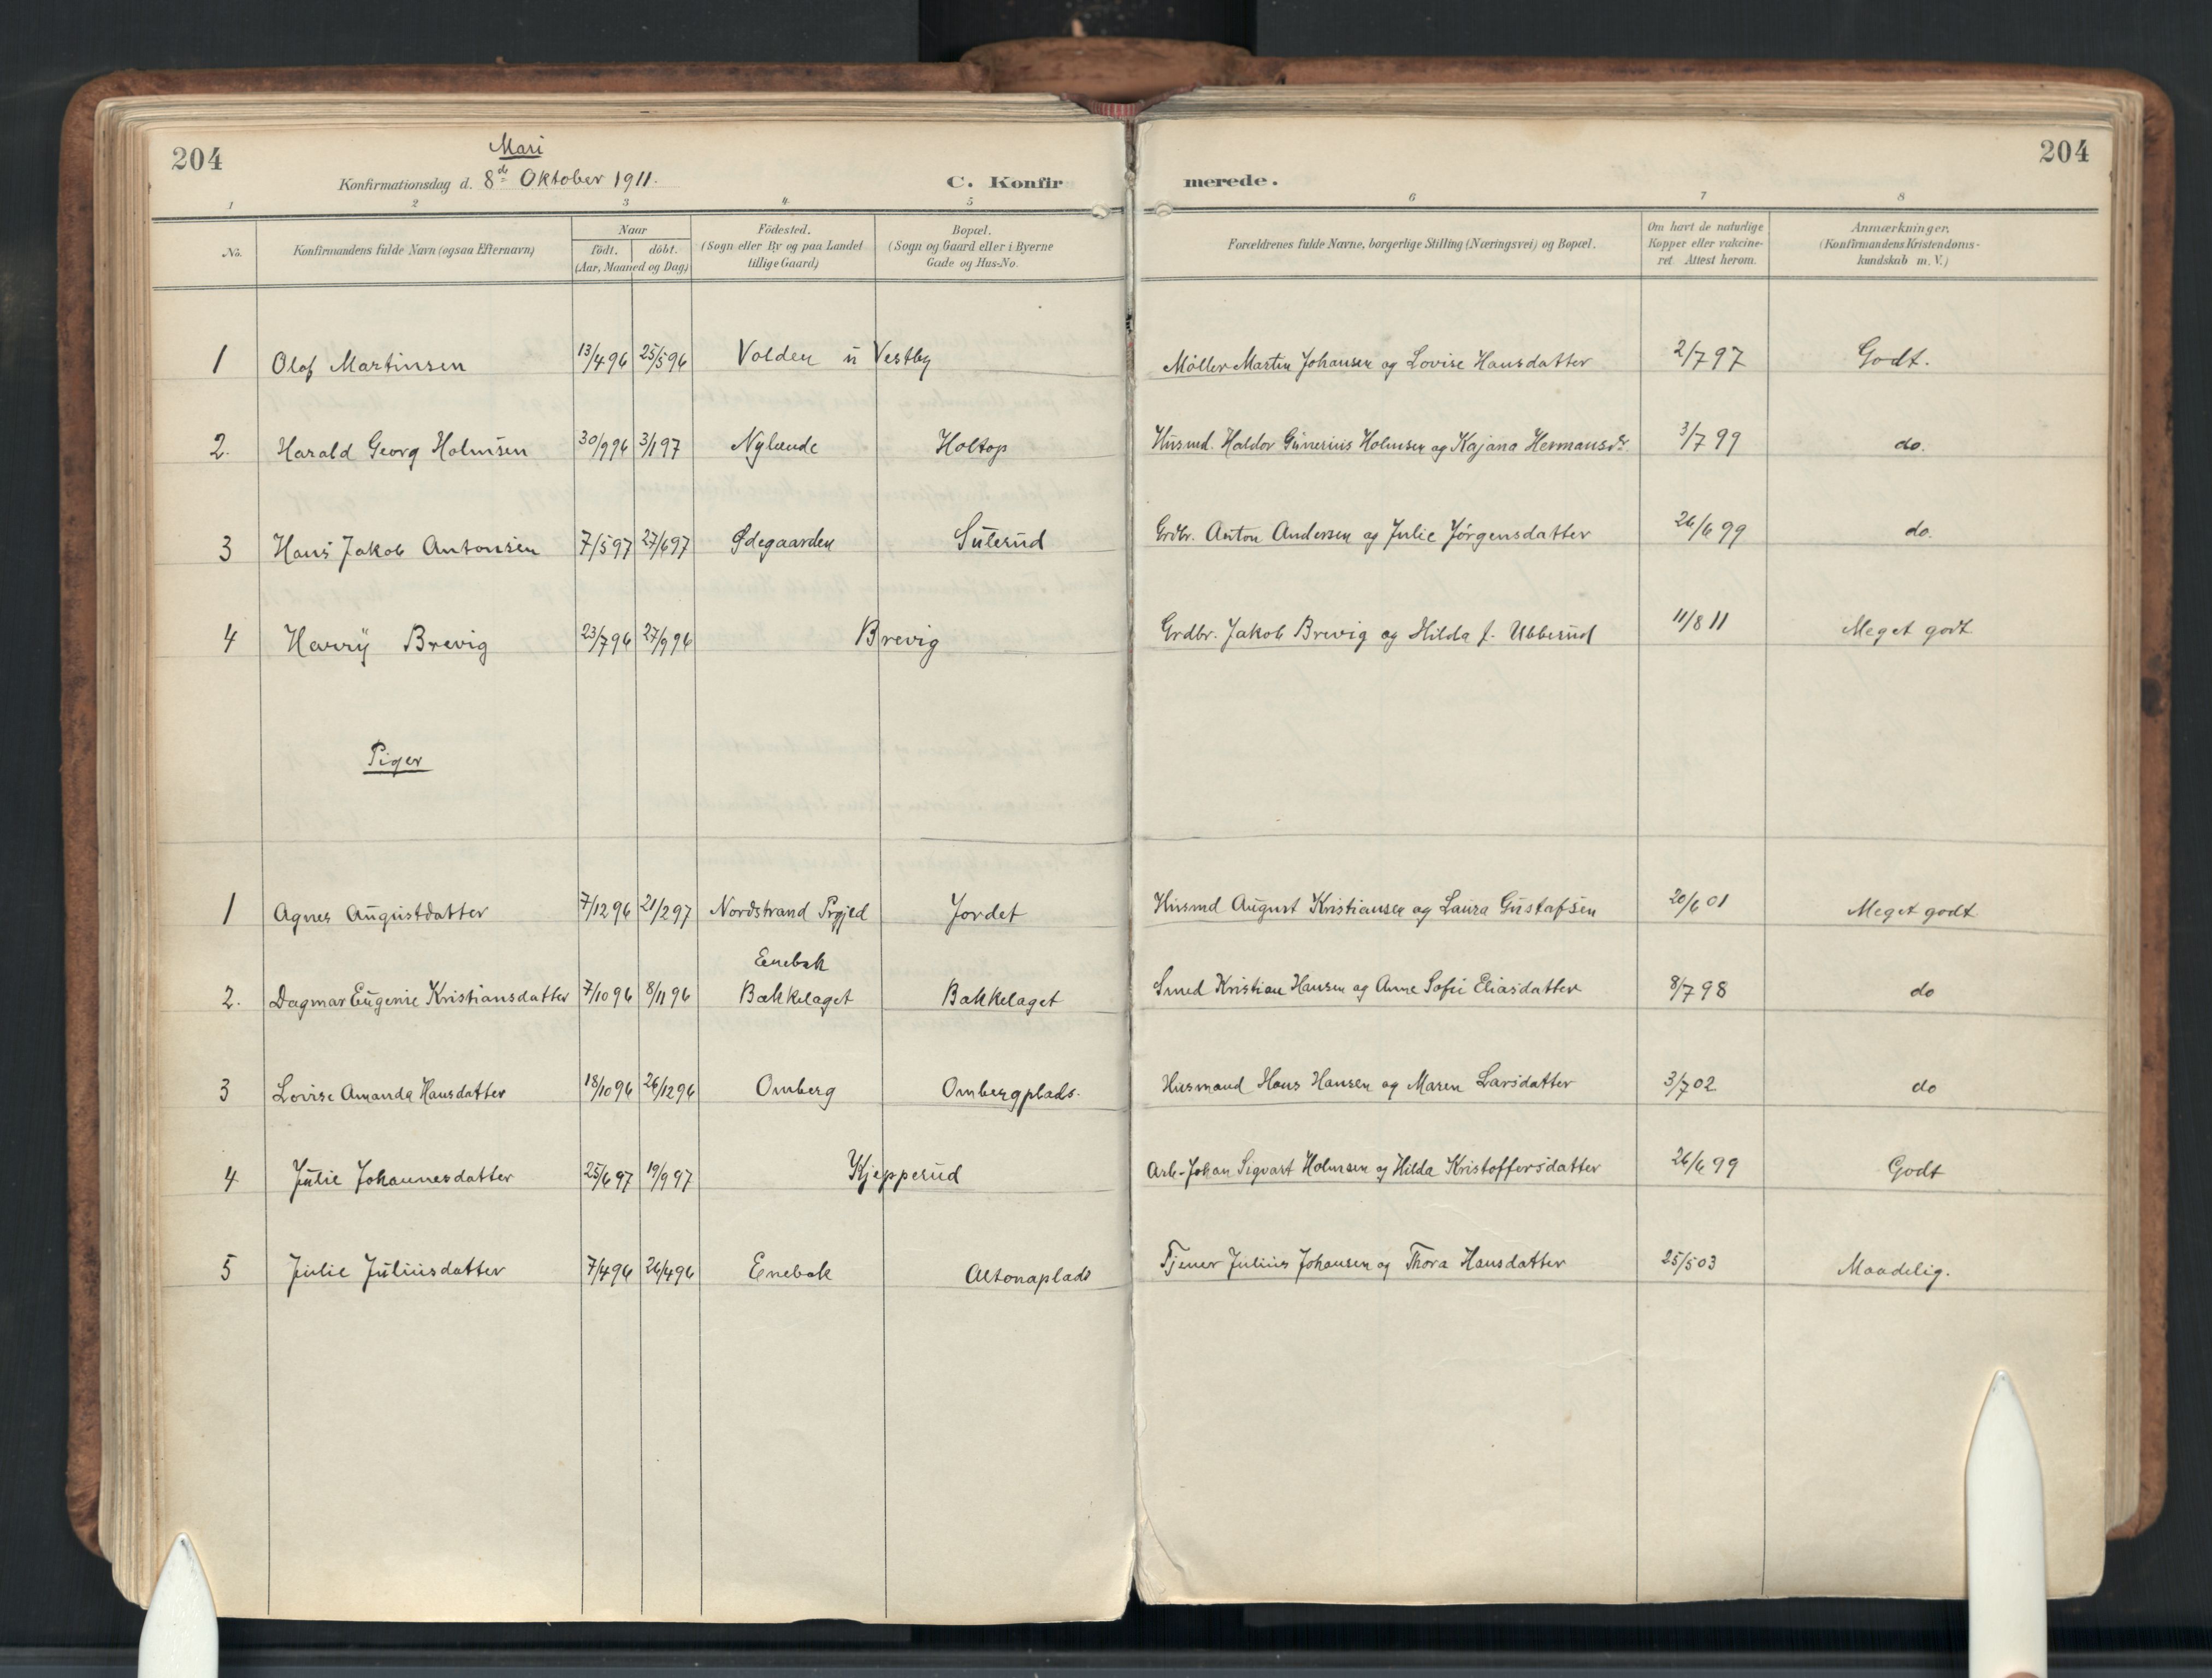 204
Mari
Konfirmationsdag d. 8de Oktober 1911.
C. Konfirmerede.
204
1 2 3 4 5 6 7 8
No.
Konfirmandens fulde Navn (ogsaa Efternavn)
Naar
födt. döbt.
(Aar, Maaned og Dag)
Födested.
(Sogn eller By og paa Landet
tillige Gaard)
Bopæl.
(Sogn og Gaard eller i Byerne
Gade og Hus-No.
Forældrenes fulde Navne, borgerlige Stilling (Næringsvei) og Bopæl.
Om havt de naturlige
Kopper eller vakcine-
ret. Attest herom.
Anmærkninger.
(Konfirmandens Kristendoms-
kundskab m. V.)
1 Olaf Martinsen 13/4 96 25/5 96 Volden u Vestby Møller Martin Johansen og Lovise Hansdatter 2/7 97 Godt.
2. Harald Georg Holmsen 30/9 96 3/1 97 Nylænde Holtop Husmd. Haldor Gunerius Holmsen og Kajana Hermansdr. 3/7 99 do.
3 Hans Jakob Antonsen 7/5 97 27/6 97 Ødegaarden Suterud Grdbr. Anton Andersen og Julie Jørgensdatter 26/6 99 do.
4 Harry Brevig 23/7 96 27/9 96 Brevig Grdbr. Jakob Brevig og Hilda f. Ubberud 11/8 11 Meget godt
Piger
1 Agnes Augustdatter 7/12 96 21/2 97 Nordstrand Prgjeld Jordet Husmd August Kristiansen og Laura Gustafsen 20/6 01 Meget godt
Enebak
2. Dagmar Eugenie Kristiansdatter 7/10 96 8/11 96 Bakkelaget Bakkelaget Smed Kristian Hansen og Anne Sofie Eliasdatter 8/7 98 do
3 Lovise Amanda Hansdatter 18/10 96 26/12 96 Omberg Ombergplads. Husmand Hans Hansen og Maren Larsdatter 3/7 02 do
4 Julie Johannesdatter 25/6 97 19/9 97 Kjepperud Arb. Johan Sigvart Holmsen og Hilda Kristoffersdatter 26/6 99 Godt
5 Julie Juliusdatter 7/4 96 26/4 96 Enebak Altonaplads Tjener Julius Johansen og Thora Hansdatter 25/5 03 Maadelig.